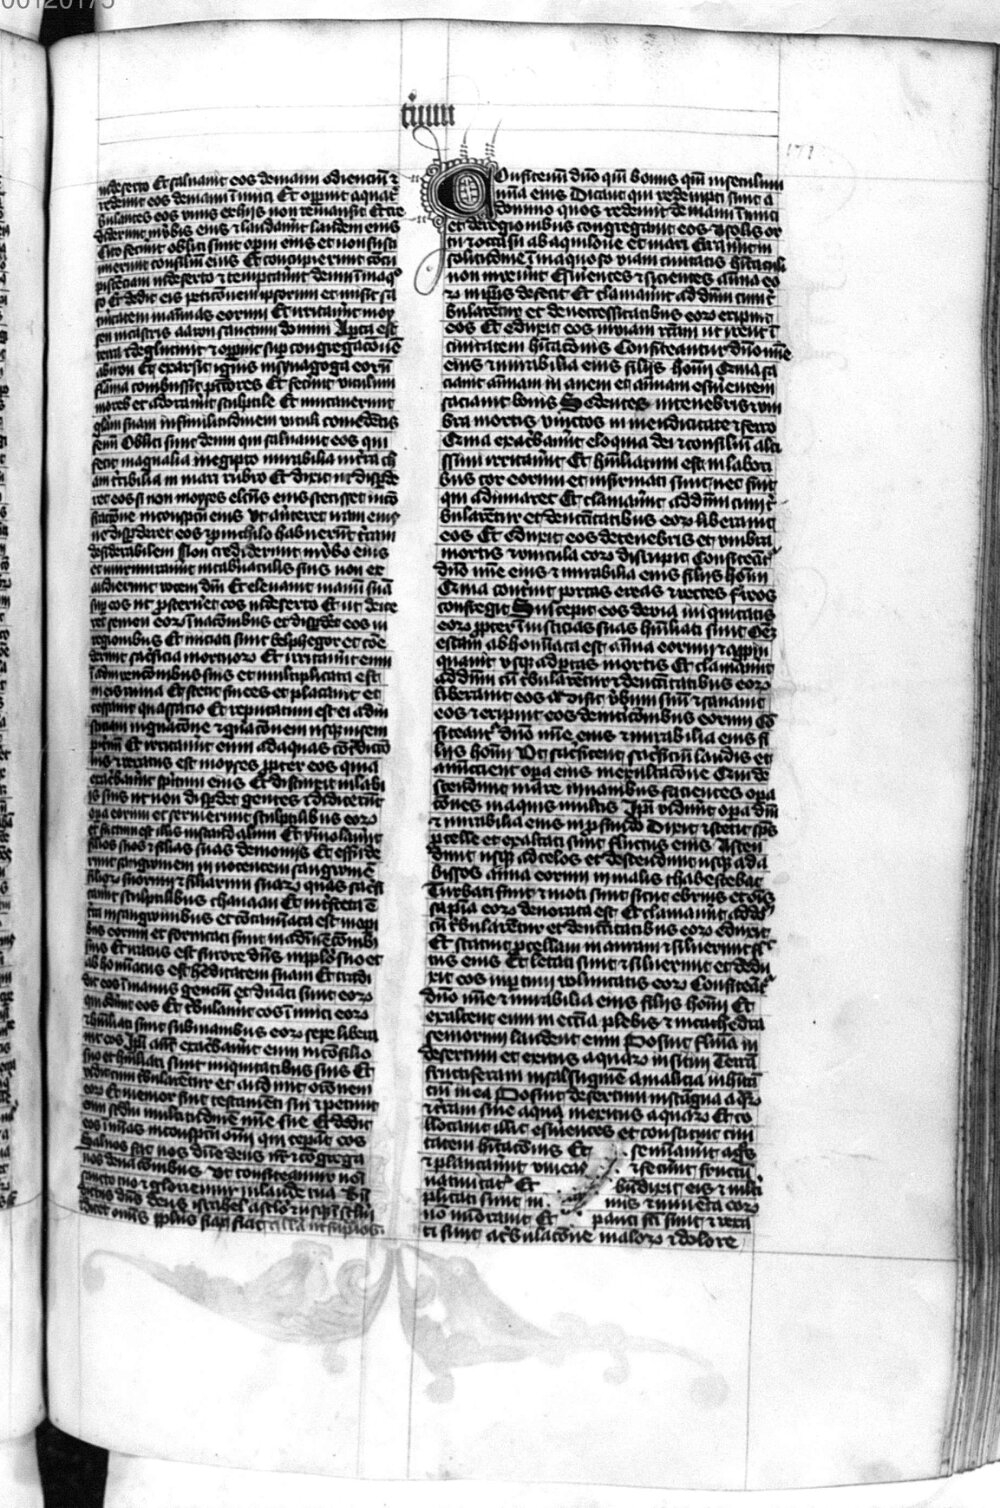 tium
in deserto Et saluauit eos de manu odienciū ⁊
redemit eos de manu īmici Et opuit aqua t̄
bulantes eos vnus ex hijs non remansit Et cre
diderunt v̓bis eius ⁊ laudauūt laudem eius
Cito fecūnt obliti sunt opm̄ eius et non susti
nuerunt consiliū eius Et concupierunt cōcu
pistenciam in deserto ⁊ temptauūt deum ī inaq°
so Et dedit eis peticōnem ipsorum et misit sa
turitatem in aīmas eorum Et irritauūt moy
sen in castris aaron sanctum domini Apta est
terra ⁊ deglutiuit ⁊ opuit sup congregacōnē
abiron Et exarsit ignis in synagoga eorū
flāma combussit pctōres Et fecūnt vitulum
in oreb et adorauūt sculptile Et mutauerunt
gl̓am suam in similitudinem vituli comedētis
fenū Obliti sunt deum qui saluauit eos qui
fecit magnalia in egipto mirabilia in t̓ra ch̄
am t̓ribilia in mari rubro Et dixit ut disp̄de
ret eos si non moyses elc̄us eius stetisset in cō
fractōne in conspctū eius Vt au̓teret iram eius
ne disp̄deret eos ⁊ pro nichilo habueru̅t t̓ram
desiderabilem Non crediderunt in v̓bo eius
et murmurauūt in tab̓naculis suis non ex
audierunt vocem dnī Et eleuauit manū suā
sup eos ut p̓sterneret eos in deserto Et ut deice
ret semen eoꝝ ī nacōnibus et disp̄deret eos in
regionibus Et iniciati sunt belphegor et cōe
derunt sacrificia mortuoꝝ Et irritauūt eum
ī adinuencōnibus suis et multiplicata est
in eis ruina Et stetit finees et placauit et
cessauit quassacio Et reputatum est ei ad iu
sticiam in gn̄acōne ⁊ gn̄acōnem usqꝫ in sem
pit̓nū Et irritauūt eum ad aquas cōt̓dictō
nis ⁊ vexatus est moyses ꝓpter eos quia
exacerbauūt spiritum eius Et distinxit in labi
is suis ut non disp̄det gentes ⁊ didicerūt
opa eorum et seruierunt sculptilibus eoꝝ
et factum est illis in scandalum Et ymolauūt
filios suos ⁊ filias suas demonijs Et effude
runt sanguinem innocentem sanguinē
filioꝝ suorum ⁊ filiarum suaꝝ quas sac̓fi
cauūt sculptilibus chanaan Et infecta ē
t̓ra in sanguinibus et cōtaminata est in opi
bus eorum et fornicati sunt in adinuēcōnibꝫ
suis Et iratus est furore dn̄s in ppl̓o suo et
abhominatus est hereditatem suam Et tradi
dit eos ī manus gencium et dn̄ati sunt eoꝝ
qui oderūt eos Et t̓bulauūt eos īimici eoꝝ
⁊ hūiliati sunt sub manibus eoꝝ sepe libera
uit eos Ipi aūt exacerbauūt eum in cōsilio
suo et hūiliati sunt in iniquitatibus suis Et
vidit cum t̓bularentur et audiuit orōnem
eoꝝ Et memor fuit testamenti sui ⁊ penituit
eum scd̄m multitudinē mīe sue Et dedit
eos ī mīas in conspctū om̄i qui cepant eos
Saluos fac nos dn̄e deus nr̄ ⁊ congrega
nos de nacōnibus Vt confiteamur noī
sancto tuo ⁊ gloriemur in laude tua Bn̄
dictus dn̄s deus israhel a sc̄lo ⁊ usqꝫ ī sc̄lm̄
⁊ dicet omīs ppl̓us fiat fiat
Confitemī dn̄o qm̄ bonus qm̄ in seculum
mīa eius Dicant qui redempti sunt a
domino quos redemit de manu īimici
et de regionibus congregauit eos a solis or
tu ⁊ occasu ab aquilone et mari Erauūt in
solitudine ī inaquoso viam ciuitatis hītaculi
non inuenūt Esurientes ⁊ sicientes aīma eo
ꝝ in ipīs defecit Et clamauūt ad dn̄m cum t̓
bularentur et de necessitatibus eoꝝ eripuit
eos Et eduxit eos in viam rc̄am ut irent ī
ciuitatem hītacōnis Confiteantur dn̄o mīe
eius ⁊ mirabilia eius filijs hoīm Quia sa
ciauit aīmam inanem et aīmam esurientem
saciauit bonis Sedentes in tenebris ⁊ um
bra mortis vinctos in mendicitate ⁊ ferro
Quia exacerbauūt eloquia dei ⁊ consiliū alti
ssimi irritauūt Et hūiliatum est in labori
bus cor eorum et infirmati sunt nec fuit
qui adiuuaret Et clamauūt ad dn̄m cum t̓
bularentur et de necc̄itatibus eoꝝ liberauit
eos Et eduxit eos de tenebris et vmbra
mortis ⁊ vincula eoꝝ disrupit Confiteant̓
dn̄o mīe eius ⁊ mirabilia eius filijs hoīm
Quia contriuit portas ereas ⁊ vectes f̓reos
confregit Suscepit eos de via iniquitatis
eoꝝ ꝓpter īiusticias suas hūiliati sunt Oēz
escam abhominata est aīma eorum ⁊ appin
quauūt vsqꝫ ad portas mortis Et clamauūt
ad dn̄m cū t̓bularentur ⁊ de necc̄itatibus eoꝝ
liberauit eos Misit v̓bum suū ⁊ sanauit
eos ⁊ eripuit eos de int̓icōnibus eorum Cō
fiteant̓ dn̄o mīe eius ⁊ mirabilia eius fi
lijs hoīm Vt sacrificent sacrificiū laudis et
annuncient opa eius in exultacōne Qui de
scendunt mare in nauibus facientes opa
cōnes in aquis multis Ipi viderunt opa dn̄i
⁊ mirabilia eius in pfundo Dixit ⁊ stetit sps̄
procelle et exaltati sunt fluctus eius Ascen
dunt usqꝫ ad celos et descendunt usqꝫ ad a
bissos aīma eorum in malis thabescebat
Turbati sunt ⁊ moti sunt sicut ebrius et oīs
sapīa eoꝝ deuorata est Et clamauūt ad dn̄m
cū t̓bularentur et de necc̄itatibus eoꝝ eduxit
Et statuit procellam in auram ⁊ siluerunt fluc
tus eius Et letati sunt ⁊ siluerunt et dedu
xit eos in portum voluntatis eoꝝ Confiteant̓
dn̄o mīe ⁊ mirabilia eius filijs hoīm Et
exaltent eum in ecc̄ia plebis ⁊ in cathedra
seniorum laudent eum Posuit flumīa in
desertum et exitus aquaꝝ in sitim Terrā
fructiferam in salsuginē a malicia inhītan
ciū in ea Posuit desertum in stagna aqꝝ
⁊ t̓ram sine aqua in exitus aquaꝝ Et co
llocauit illic esurientes et constituit ciui
tatem hītacōnis Et seminauūt agros
⁊ plantauūt vineas ⁊ fecūnt fructū
natiuitat̓ Et bn̄dixit eis ⁊ multi
plicati sunt ni mis ⁊ iumenta eoꝝ
nō minorauit Et pauci fc̄i sunt ⁊ vexa
ti sunt a t̓bulacōne maloꝝ ⁊ dolore